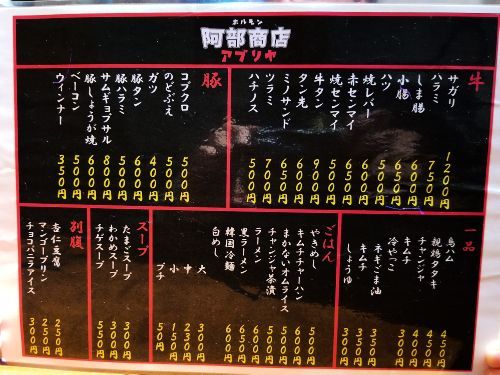 ホルモン
阿部商店
アブリヤ
牛
サガリ 1200円
ハラミ 750円
しま腸
小腸
ハツ
焼レバー
赤センマイ
焼センマイ
牛タン 900円
タン先
ミノサンド
ツラミ 700円
ハチノス 500円
豚
コブクロ 500円
のどぶえ
ガツ
豚タン
豚ハラミ 500円
サムギョプサル 800円
豚しょうが焼 600円
ベーコン
ウィンナー 350円
一品
鳥ハム 450円
親鶏タタキ 450円
チャンジャ 400円
キムチ 300円
冷やっこ
ネギごま油 350円
キムチ 350円
しょうゆ 350円
ごはん
やきめし 500円
キムチチャーハン
まかないオムライス
チャンジャ茶漬
ラーメン
黒ラーメン
韓国冷麺
白めし
大 300円
中 230円
小 150円
プチ 50円
スープ
たまごスープ 300円
わかめスープ 300円
チゲスープ 500円
別腹
杏仁豆腐 250円
マンゴープリン 250円
チョコバニラアイス 300円